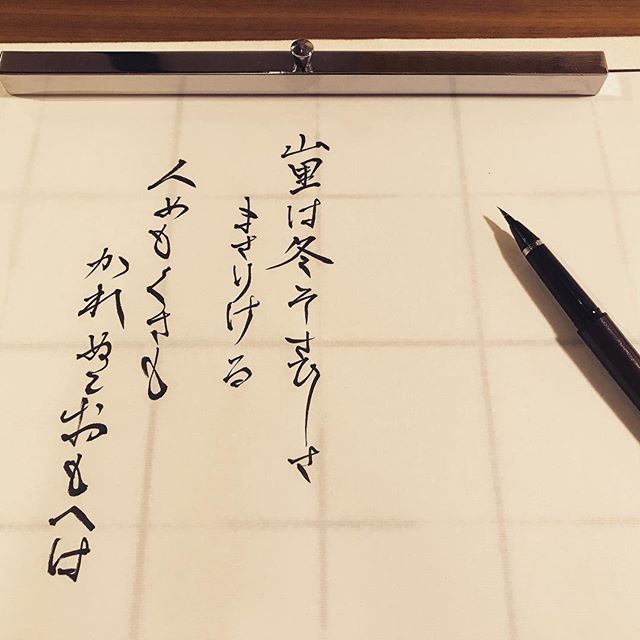 山里は冬そさひしさ
まさりける
人めもくさも
かれぬとおもへは